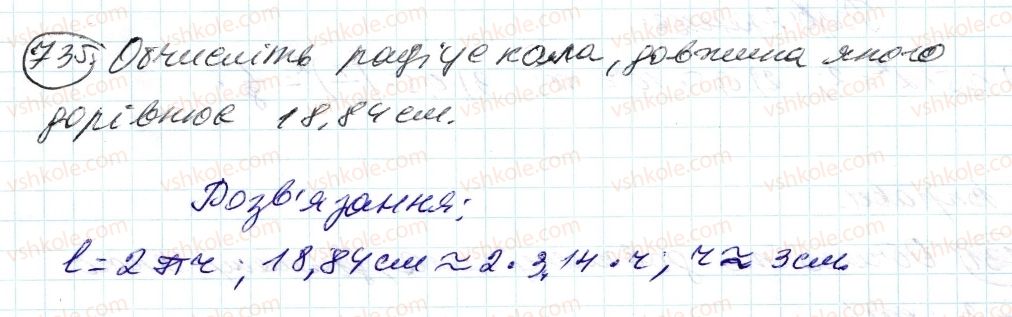 735. Обчисліть радіус кола, довжина якого
дорівнює 18,84 см.
Розв'язання:
l = 2πr; 18,84 см ≈ 2 · 3,14 · r; r ≈ 3 см.